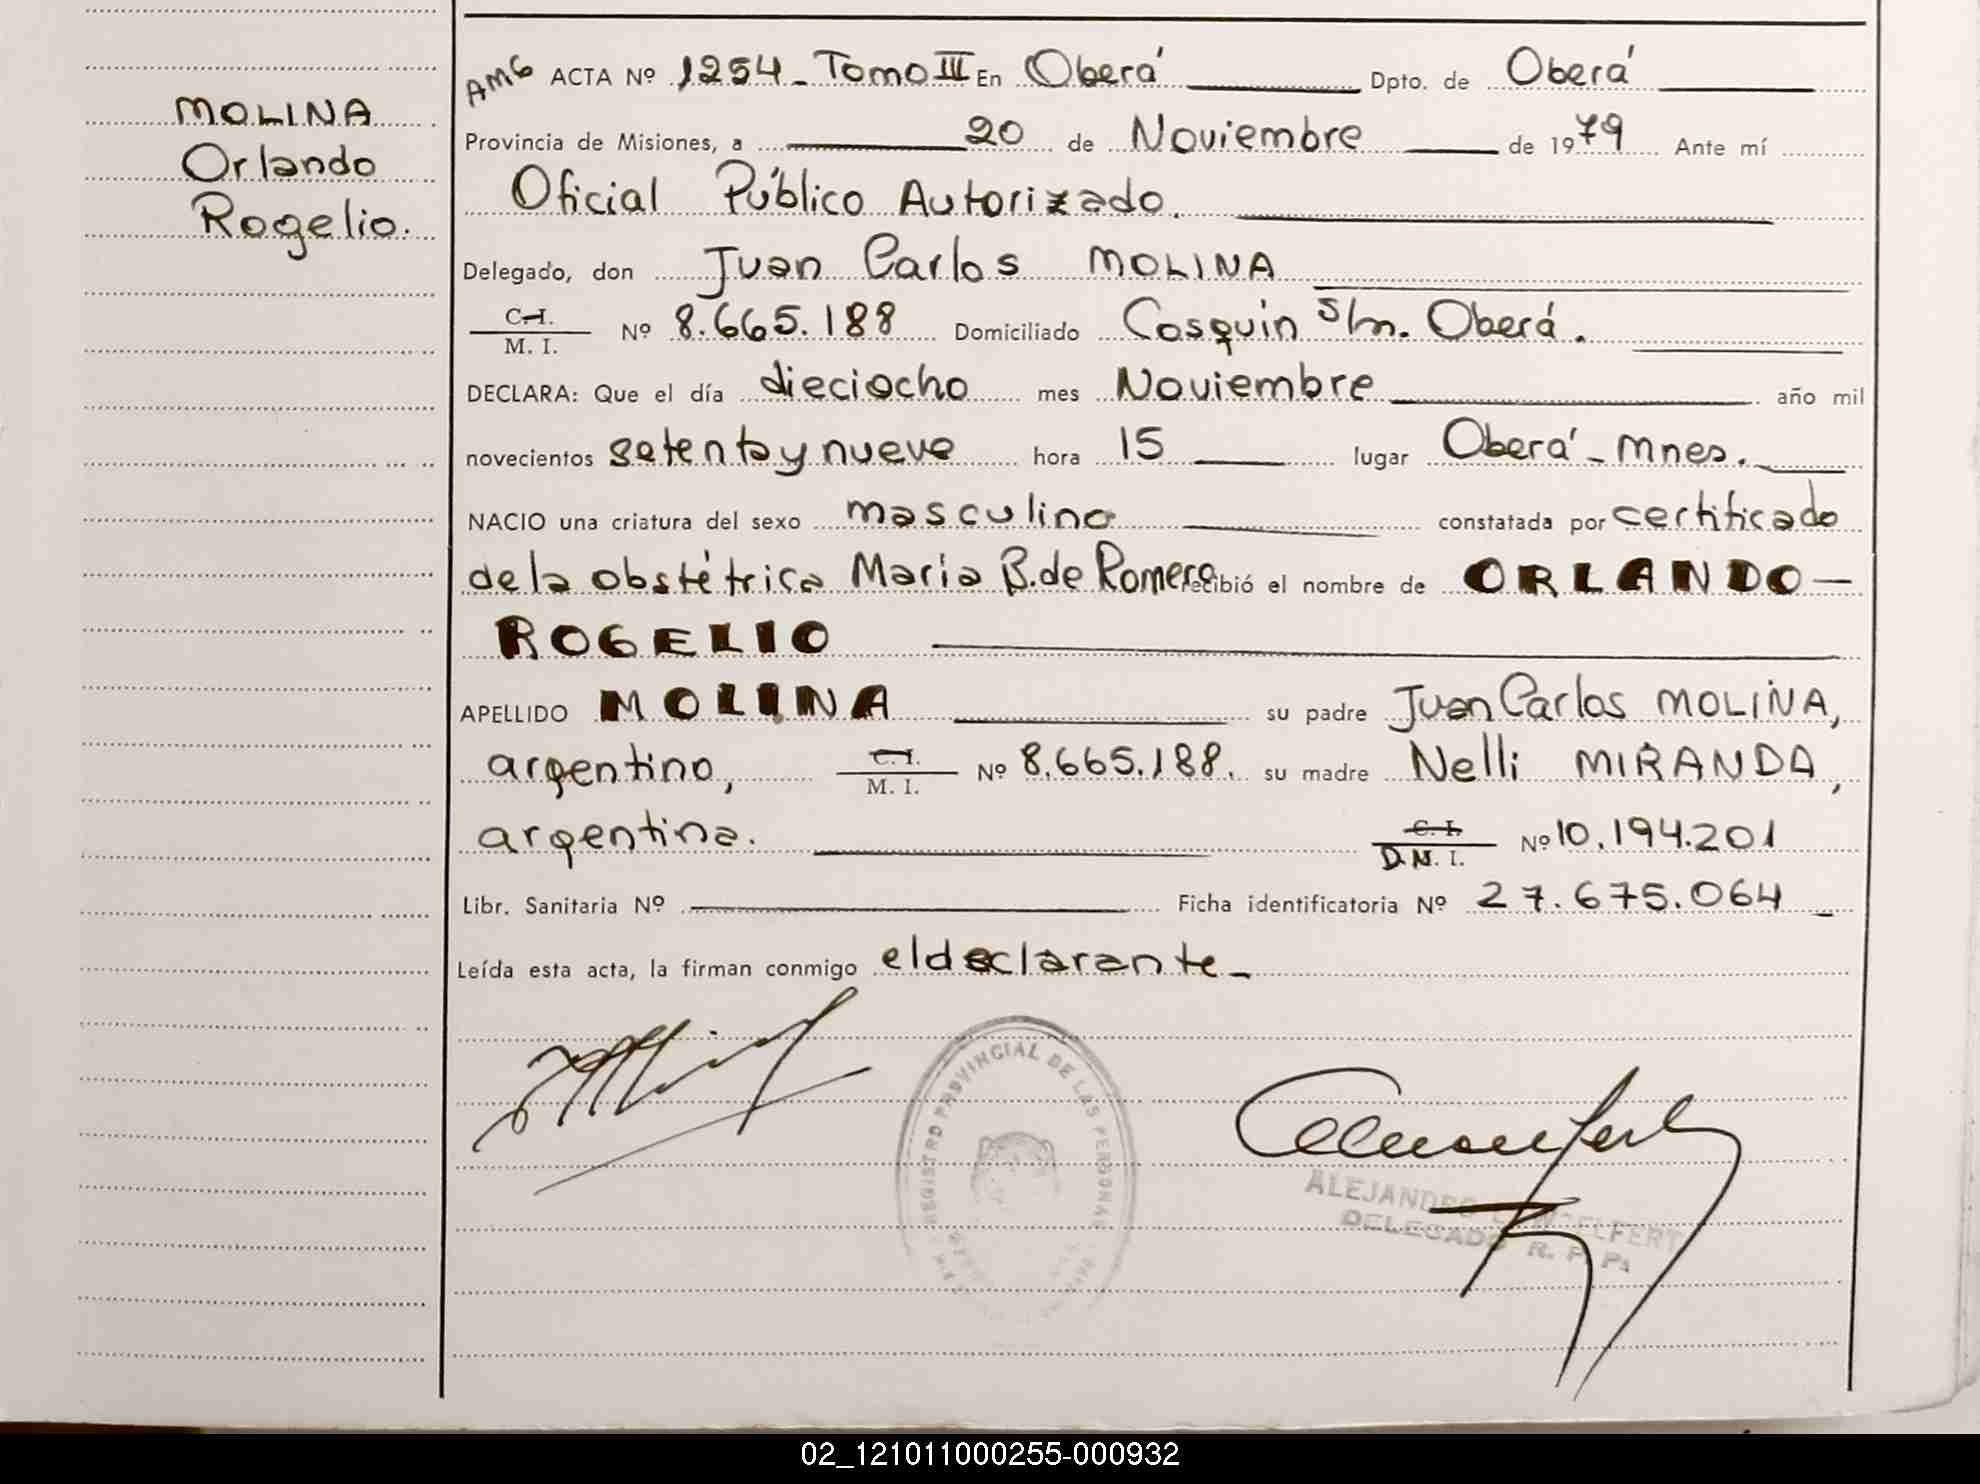 MOLINA
Orlando
Rogelio.
AMG ACTA Nº 1254_ Tomo III En Oberá Dpto. de Oberá
Provincia de Misiones, a 20 de Noviembre de 1979 Ante mí
Oficial Público Autorizado.
Delegado, don Juan Carlos MOLINA
C.I. M. I. Nº 8.665.188 Domiciliado Cosquin s/n. Oberá.
DECLARA: Que el día dieciocho mes Noviembre año mil
novecientos setenta y nueve hora 15 lugar Oberá - Mnes.
NACIO una criatura del sexo masculino constatada por certificado
de la obstétrica María B. de Romero recibió el nombre de ORLANDO
ROGELIO
APELLIDO MOLINA su padre Juan Carlos MOLINA,
argentino, C.I. M. I. Nº 8.665.188. su madre Nelli MIRANDA,
argentina. C. I. D.N. I. Nº 10.194.201
Libr. Sanitaria Nº Ficha identificatoria Nº 27.675.064
Leída esta acta, la firman conmigo el declarante_
REGISTRO PROVINCIAL DE LAS PERSONAS
ALEJANDRO
DELEGADO R. P. P.
02_121011000255-000932